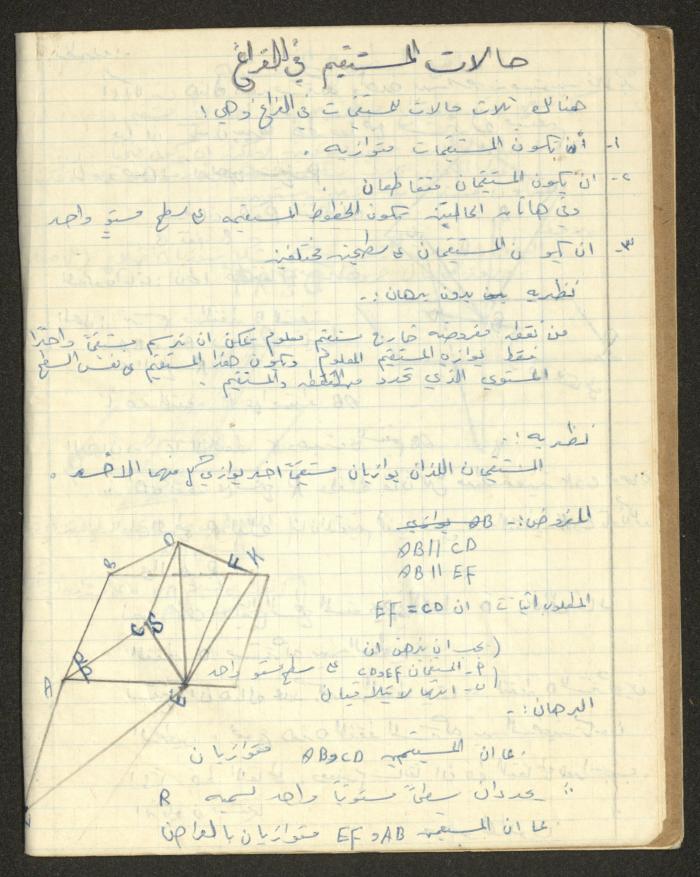 حالات المستقيم في الفراغ
هنالك ثلاث حالات للمستقيمات في الفراغ وهي :
١- أن تكون المستقيمات متوازيه .
٢- ان يكون المستقيمان متقاطعان .
وفي هاتان الحالتين تكون الخطوط المستقيمه على سطح مستوٍ واحد
٣- ان يكون المستقيمان على سطحين مختلفين
نظريه بدون برهان :-
من نقطه مفروضه خارج مستقيم معلوم يمكن ان نرسم مستقيماً واحداً
فقط يوازي المستقيم المعلوم ويكون هذا المستقيم في نفس السطح
المستوي الذي تحدد من النقطه والمستقيم .
نظريه :-
المستقيمان اللذان يوازيان مستقيماً آخر يوازي كل منهما الآخر .
المفروض :- AB يوازي
AB // CD
AB // EF
المطلوب اثبات ان EF = CD
يجب ان نبرهن ان
٢- المستقيمان CD و EF على سطح مستوٍ واحد
ب- انهما لا يتلاقيان
البرهان :-
بما ان المستقيمين AB و CD متوازيان
∴ يحددان سطحاً مستوياً واحد نسميه R
بما ان المستقيمين AB و EF متوازيان بالفرض
B
D
F
K
C
S
A
R
E